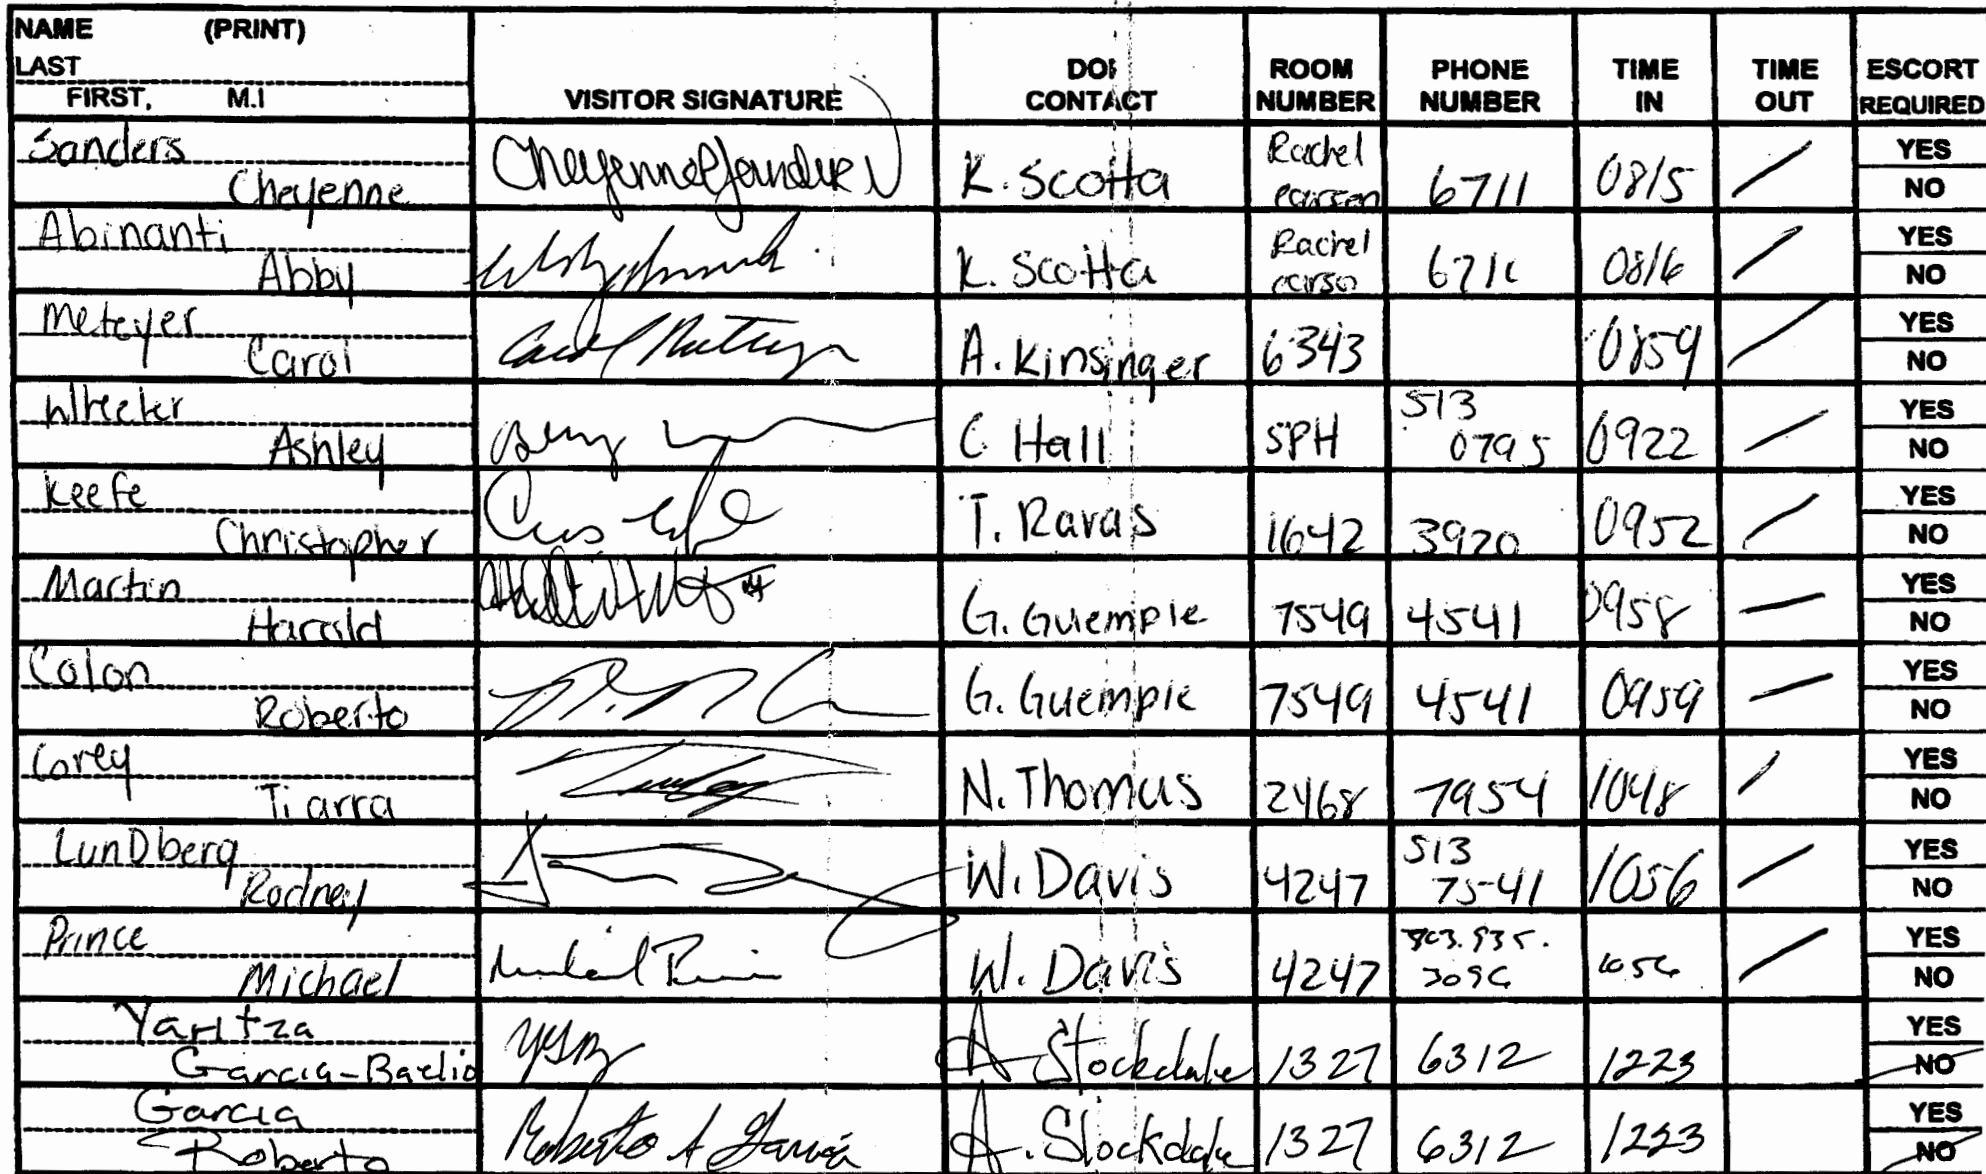 NAME (PRINT)
LAST
FIRST, M.I
VISITOR SIGNATURE
DOI CONTACT
ROOM NUMBER
PHONE NUMBER
TIME IN
TIME OUT
ESCORT REQUIRED
Sanders Cheyenne K. Scotta Rachel 6711 0815 YES NO
Abinanti Abby K. Scotta Rachel carso 0816 YES NO
Meteyer Carol Carol Meteyer A. Kinsinger 6343 0859 YES NO
Wheeler Ashley C. Hall SPH 513 0795 0922 YES NO
Keefe Christopher T. Ravas 1642 3920 0952 YES NO
Martin Harold G. Guemple 7549 4541 0958 YES NO
Colon Roberto G. Guemple 7549 4541 0959 YES NO
Corey Tiarra N. Thomas 2468 7954 1048 YES NO
LunDberg Rodney W. Davis 4247 513 7541 1056 YES NO
Prince Michael Michael Prince W. Davis 4247 1056 YES NO
Yaritza Garcia-Baelio A. Stockdale 1327 6312 1223 YES NO
Garcia Roberto Roberto A Garcia A. Stockdale 1327 6312 1223 YES NO